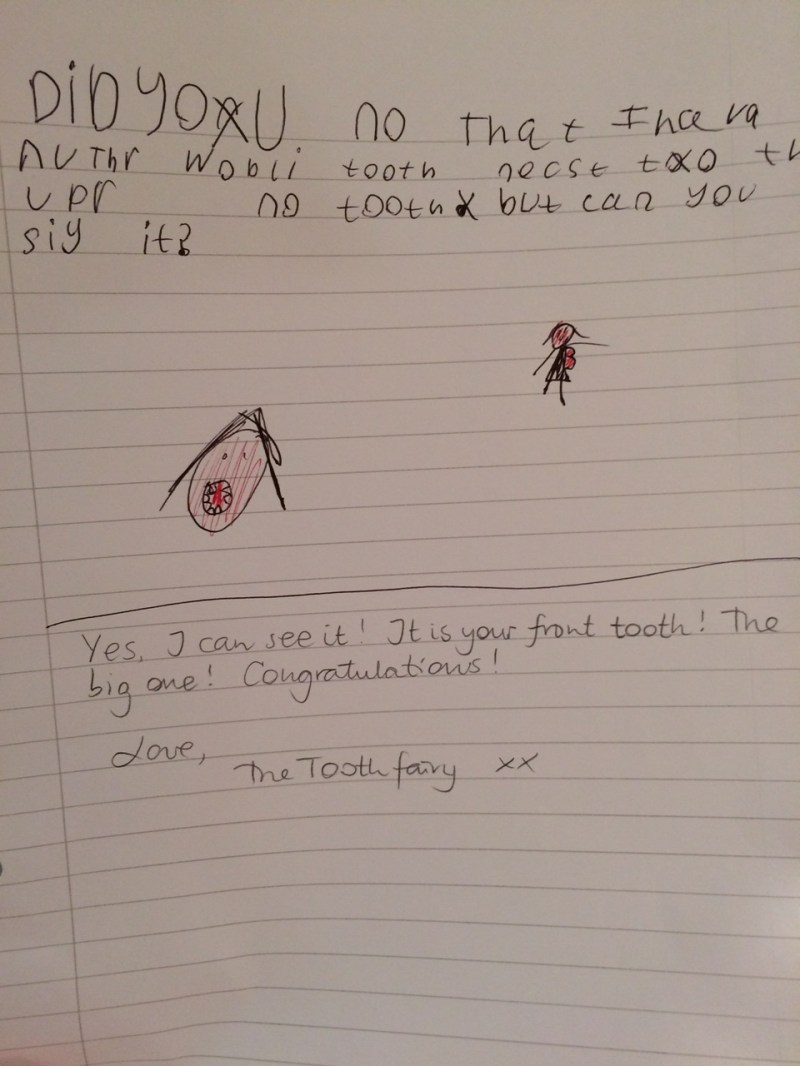 DiD YOU no that I hava
nuthr wobli tooth necst to th
upr no tooth but can you
siy it?
Yes, I can see it! It is your front tooth! The
big one! Congratulations!
Love,
The Tooth fairy xx